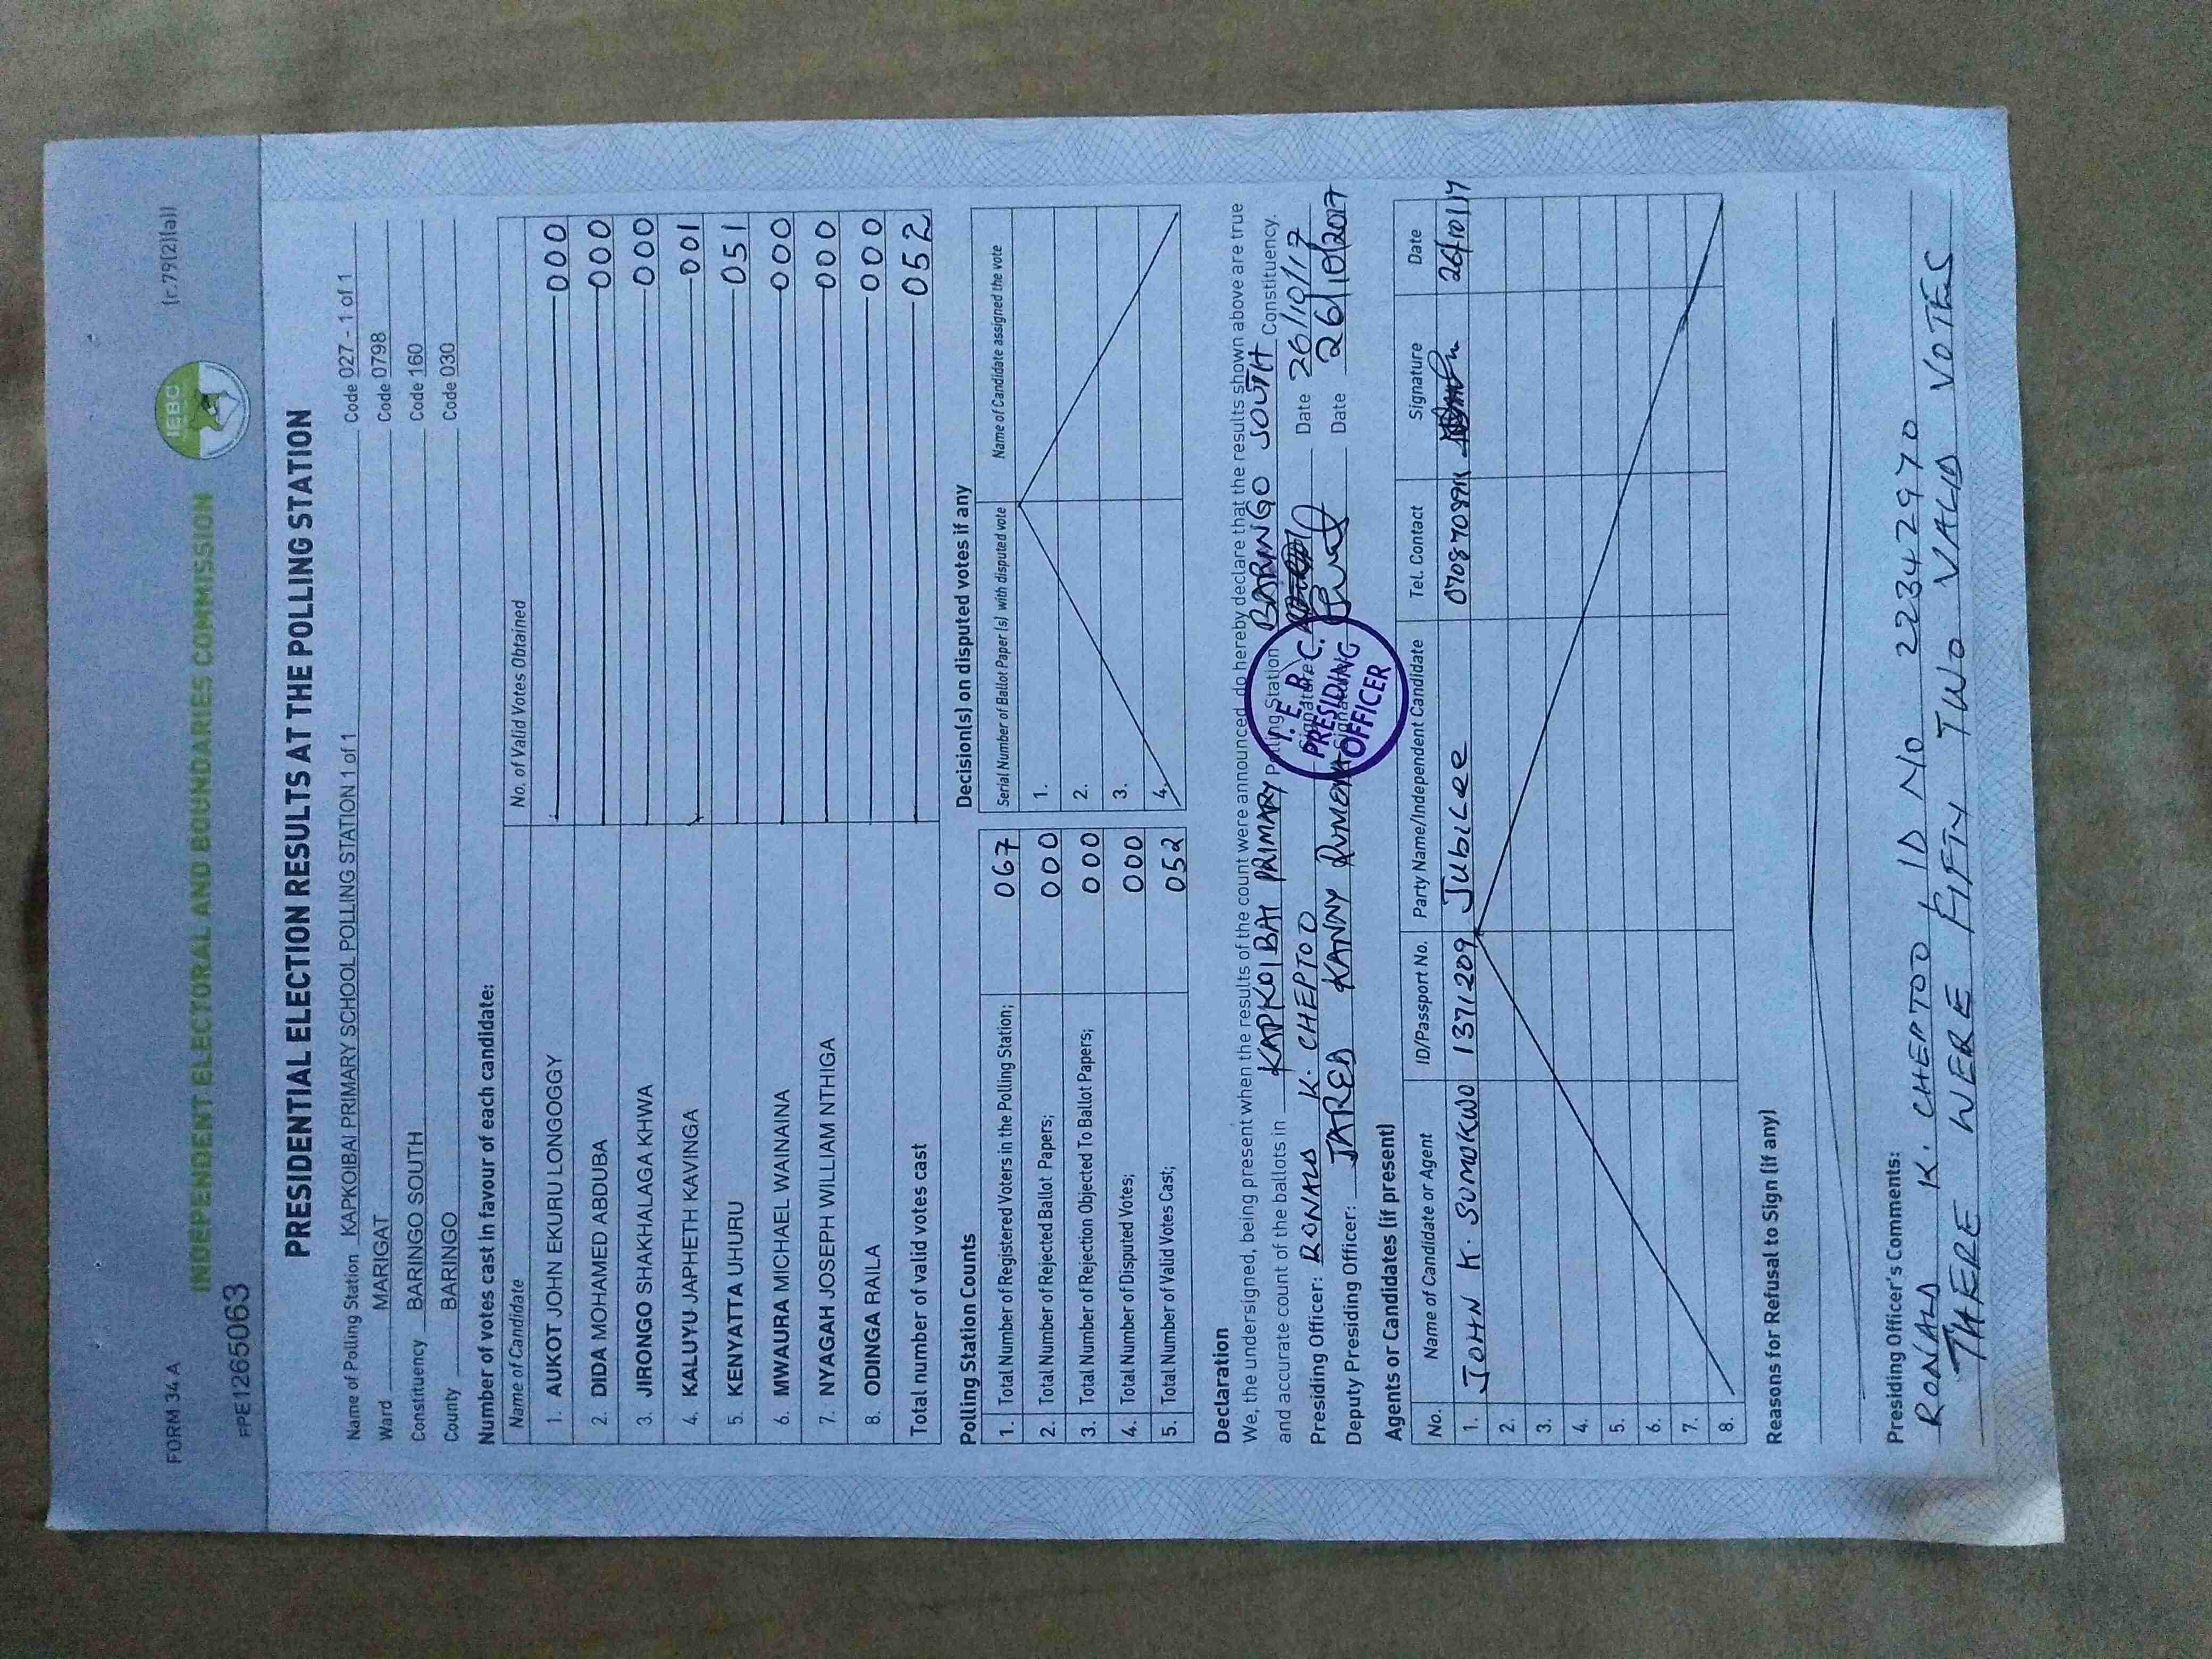 FORM 34 A
(r.79(2)(a))
IEBC
INDEPENDENT ELECTORAL AND BOUNDARIES COMMISSION
PPE1265063
PRESIDENTIAL ELECTION RESULTS AT THE POLLING STATION
Name of Polling Station KAPKOIBAI PRIMARY SCHOOL POLLING STATION 1 of 1 Code 027 - 1 of 1
Ward MARIGAT Code 0798
Constituency BARINGO SOUTH Code 160
County BARINGO Code 030
Number of votes cast in favour of each candidate:
Name of Candidate No. of Valid Votes Obtained
1. AUKOT JOHN EKURU LONGOGGY 000
2. DIDA MOHAMED ABDUBA 000
3. JIRONGO SHAKHALAGA KHWA 000
4. KALUYU JAPHETH KAVINGA 001
5. KENYATTA UHURU 051
6. MWAURA MICHAEL WAINAINA 000
7. NYAGAH JOSEPH WILLIAM NTHIGA 000
8. ODINGA RAILA 000
Total number of valid votes cast 052
Polling Station Counts
1. Total Number of Registered Voters in the Polling Station; 067
2. Total Number of Rejected Ballot Papers; 000
3. Total Number of Rejection Objected To Ballot Papers; 000
4. Total Number of Disputed Votes; 000
5. Total Number of Valid Votes Cast; 052
Decision(s) on disputed votes if any
Serial Number of Ballot Paper (s) with disputed vote Name of Candidate assigned the vote
1.
2.
3.
4.
Declaration
We, the undersigned, being present when the results of the count were announced, do hereby declare that the results shown above are true
and accurate count of the ballots in KAPKOIBAI PRIMARY Polling Station BARINGO SOUTH Constituency.
Presiding Officer: RONALD K. CHEPTOO Signature Date 26/10/17
Deputy Presiding Officer: JARED KANNY Signature Date 26/10/2017
I.E.B.C.
PRESIDING
OFFICER
Agents or Candidates (if present)
No. Name of Candidate or Agent ID/Passport No. Party Name/Independent Candidate Tel. Contact Signature Date
1. JOHN K. SUMOKWO 1371209 JUBILEE 26/10/17
2.
3.
4.
5.
6.
7.
8.
Reasons for Refusal to Sign (if any)
Presiding Officer's Comments:
RONALD K. CHEPTOO ID NO 22342970
THERE WERE FIFTY TWO VALID VOTES